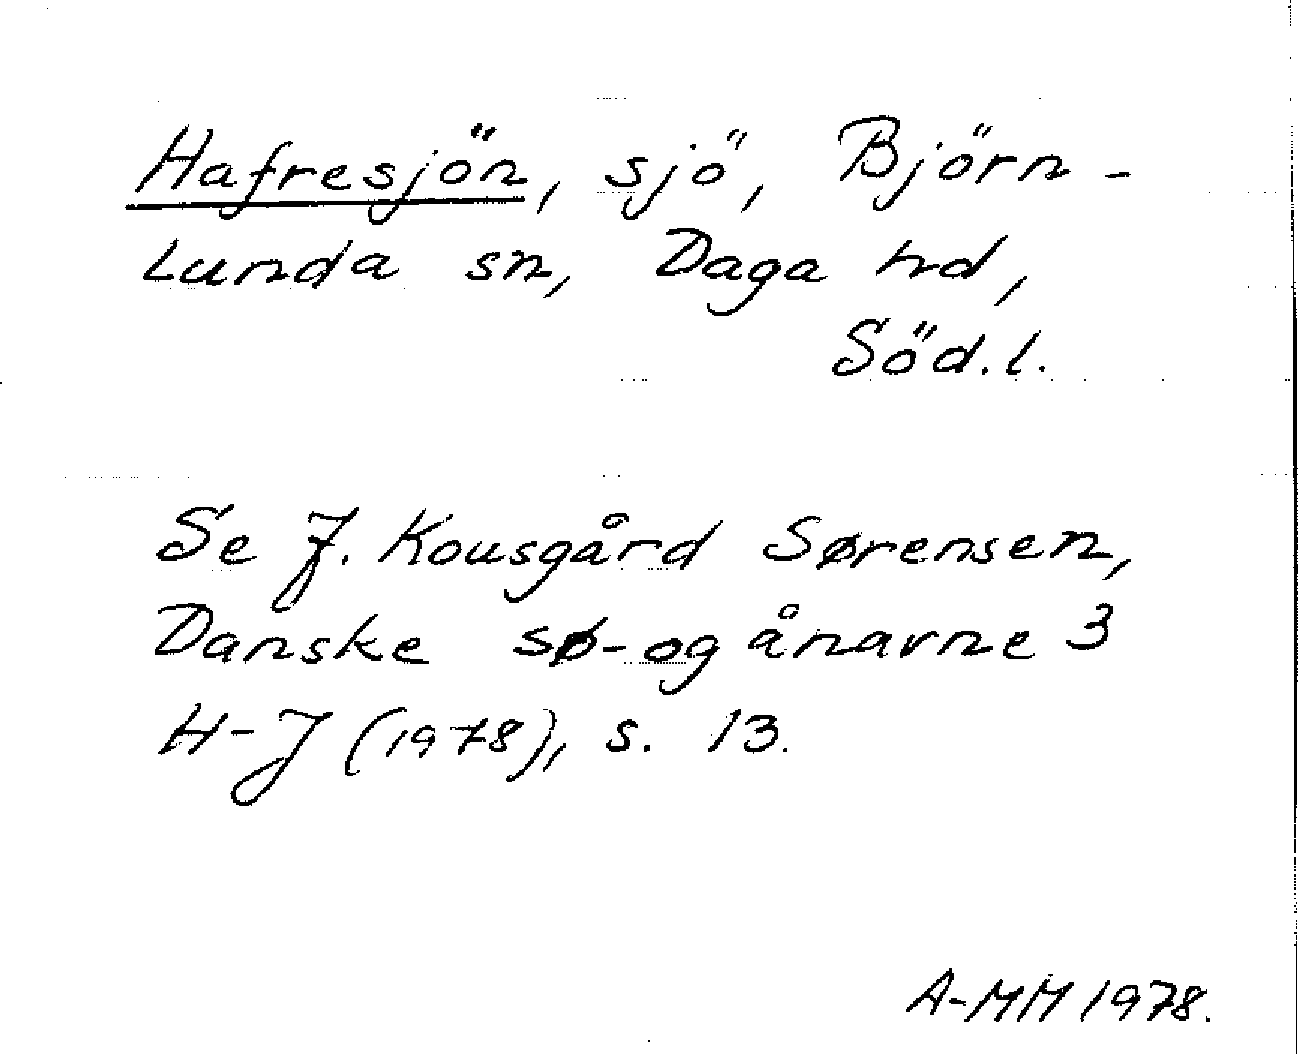 Hafresjön, sjö, Björn-
Lunda sn, Daga hd,
Söd.l.
Se J. Kousgård Sørensen,
Danske sø- og ånavne 3
H-J (1978), s. 13.
A-MM 1978.